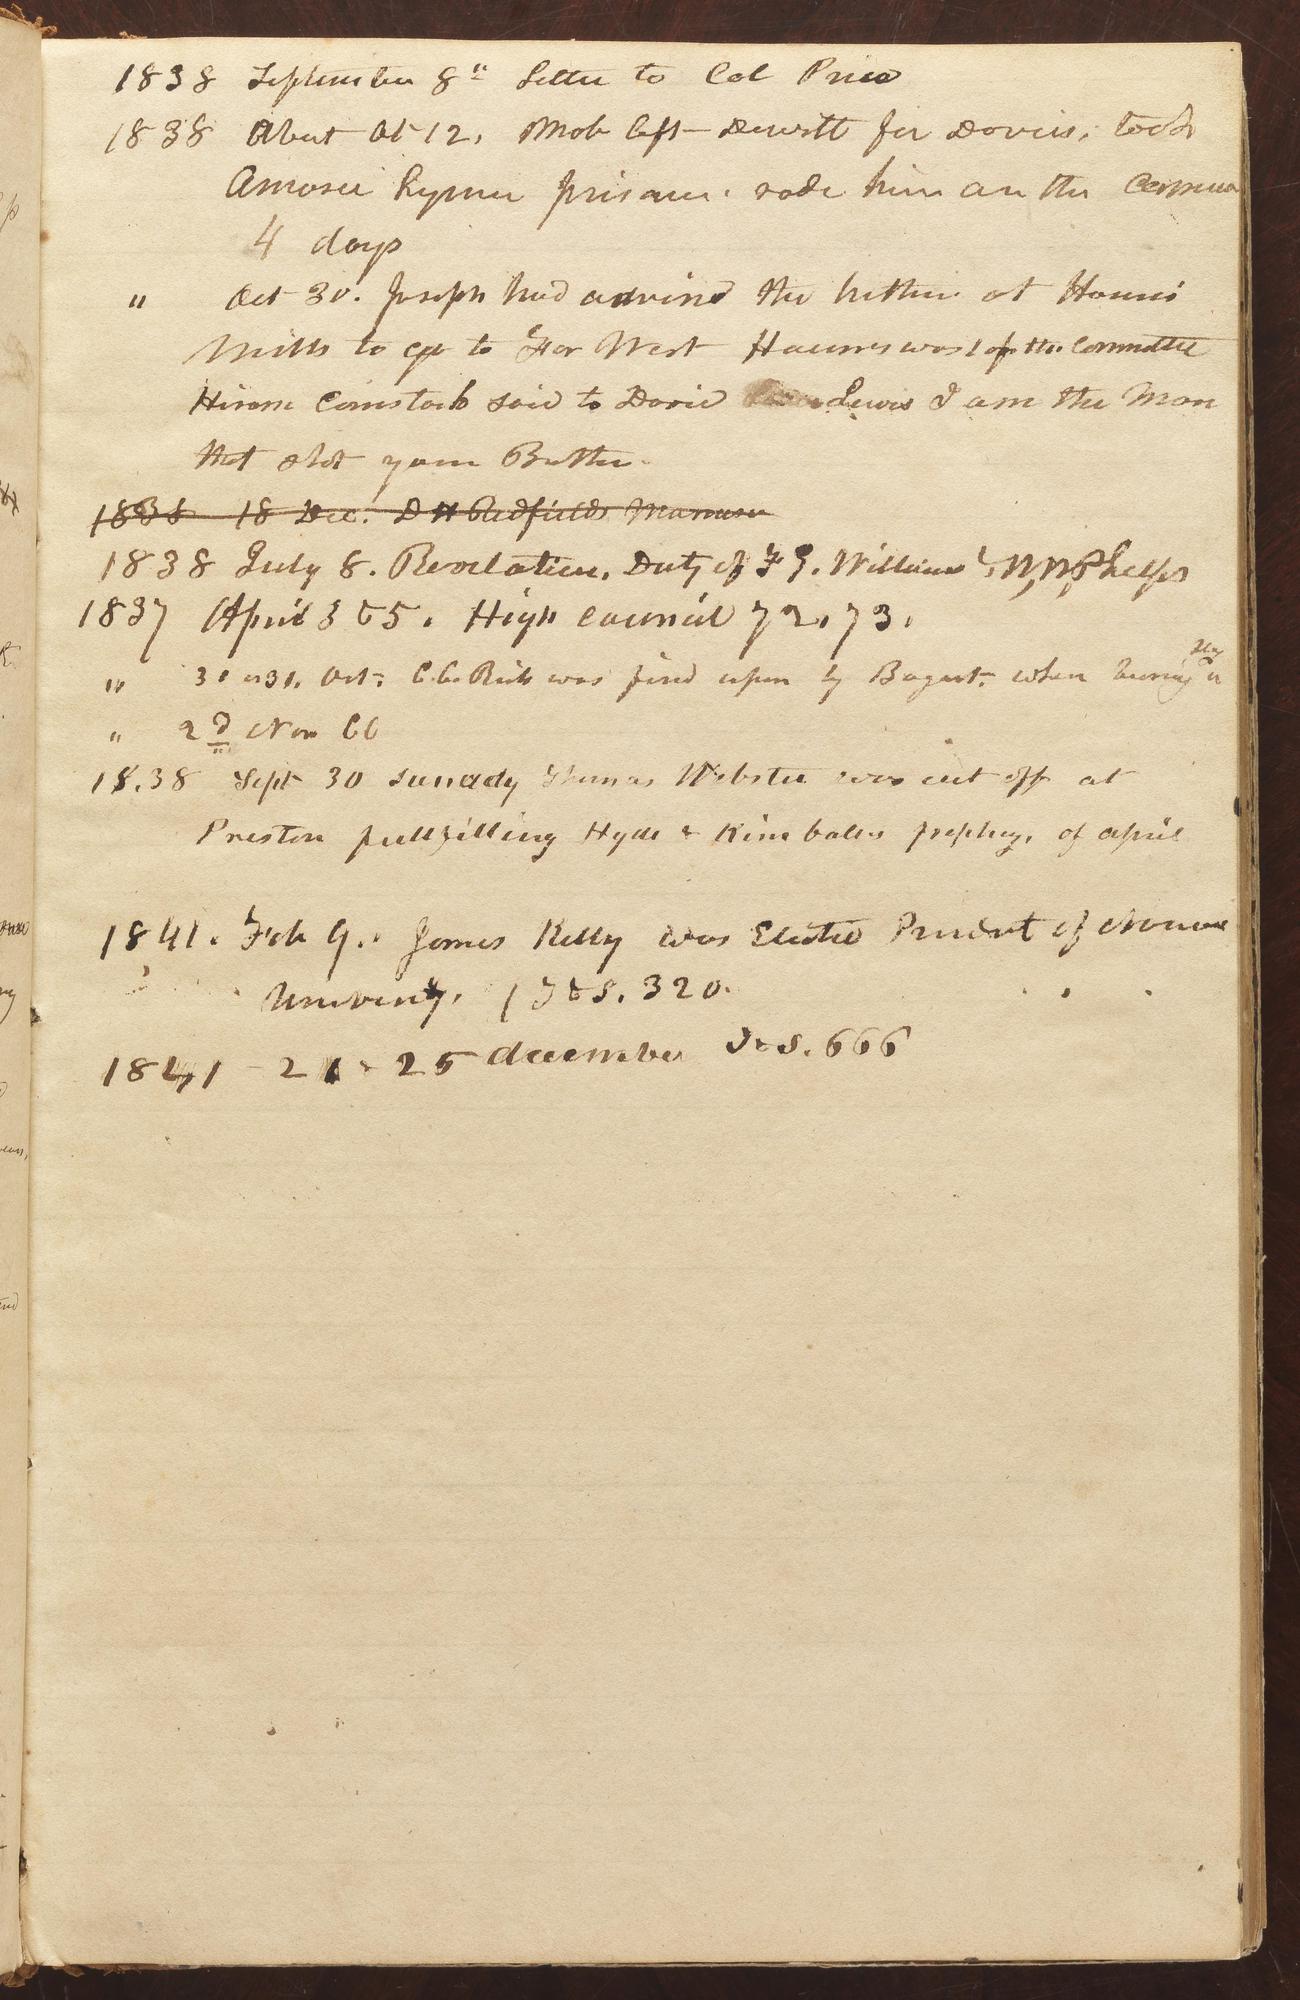 1838 September 8" Letter to Col Price
1838 About Oct 12, Mob left Dewitt for Daviess, took
Amasa Lyman prisoner. rode him on the Cannon
4 days
" Oct 30. Joseph had advised the brethren at Hauns
Mills to get to Far West Hauns was 1 of the committee
Hiram Comstock said to David Lewis I am the Man
that shot your Brother.
1838 18 Dec. D H Redfields Manuscr
1838 July 8. Revelation, Duty of F G. Williams & W, W, Phelps
1837 April 3 & 5. High council 72, 73,
" 30 or 31, Oct. C. C. Rich was fired upon by Bogart. when bearing a flag
" 2d Nov 66
18.38 Sept 30 sunady Thomas Webster was cut off at
Preston fullfilling Hyde & Kimballs prophey, of april
1841. Feb 9. James Kelly was Elected President of Nauvoo
University. 1 T & S. 320.
1841 - 25 december T & S. 666